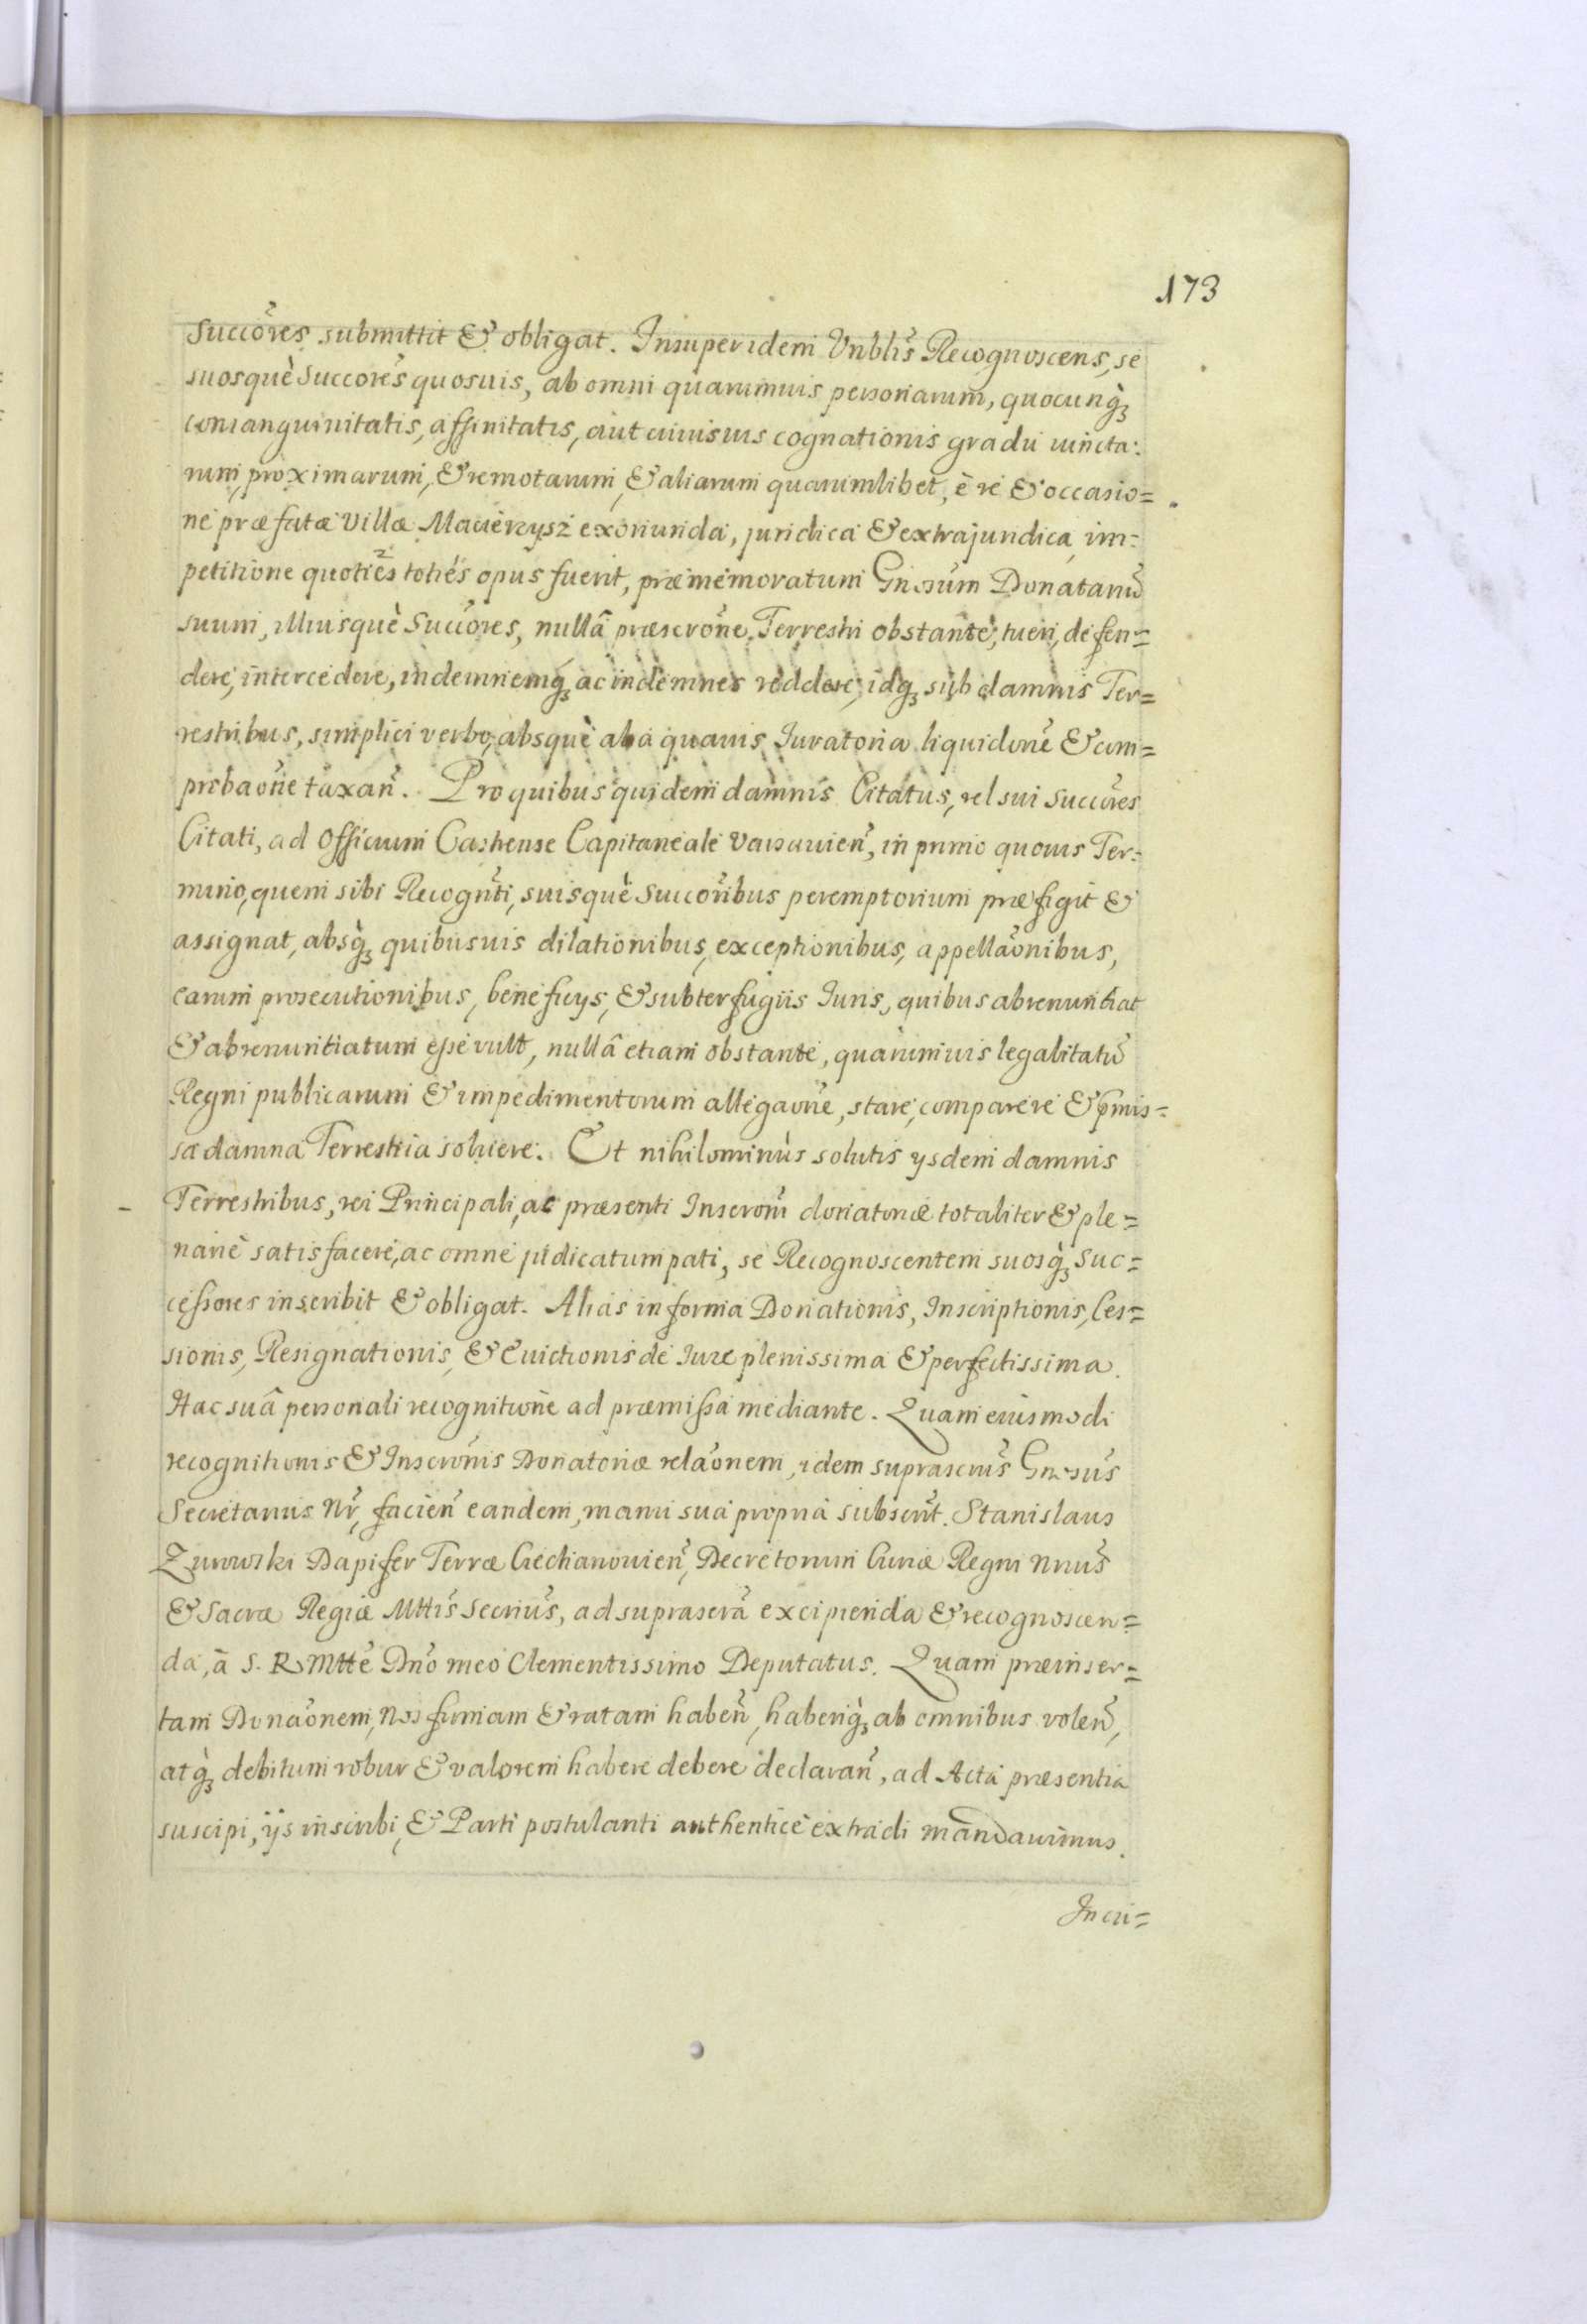 173
Succōres submittit & obligat. Insuper idem Vnblīs Recognoscens, se
suosquè Succorēs quosuis, ab omni quarumuis personarum, quocunq́
consanguinitatis, affinitatis, aut cuiusuis cognationis gradu iuncta:
rum, proximarum, & remotarum, & aliarum quarumlibet, è re & occasio=
ne præfatæ Villæ exoriunda, juridica & extrajuridica im=
petitione quotiēs totiés opus fuerit, præmemoratum Gnōsum Donatariū
suum, illiusquè Succōres, nullâ præscrōne Terrestri obstante, tueri, defen=
dere, intercedere, indemnemq́ ac indemnes reddere, idq́ sub damnis Ter=
restribus, simplici verbo, absquè alia quauis Iuratoria liquidōne & com=
probaōne taxañ. Pro quibus quidem damnis Citatus, vel sui Succōres
Citati, ad Officium Castrense Capitaneale Varsauień, in primo quouis Ter=
mino, quem sibi Recognīti, suisquè Succorībus peremptorium præfigit &
assignat, absq̀ quibusuis dilationibus, exceptionibus, appellaōnibus,
earum prosecutionibus, beneficys, & subterfugiis Iuris, quibus abrenuntiat
& abrenuntiatum eße vult, nullâ etiam obstante, quarumuis legalitatū
Regni publicarum & impedimentorum allegaōne, stare, comparere & pmis=
sa damna Terrestria soluere. Et nihilominùs solutis ysdem damnis
Terrestribus, rei Principali, ac præsenti Inscroni donatoriæ totaliter & ple=
nariè satisfacere, ac omne judicatum pati, se Recognoscentem suosq̀ Suc=
ceßores inscribit & obligat. Aliàs in forma Donationis, Inscriptionis, Ces=
sionis, Resignationis, & Euictionis de Iure plenissima & perfectissima.
Hac suâ personali recognitione ad præmißa mediante. Quam eiusmodi
recognitionis & Inscrōnis Donatoriæ relaōnem, idem suprascrūs Gnōsūs
Secretarius Nr, facień eandem, manu sua propria subscrīt. Stanislaus
Zurowski Dapifer Terræ Ciechanouień, Decretorum Curiæ Regni Nriūs
& Sacræ Regiæ Mttīs Secriūs, ad suprascrā excipienda & recognoscen=
da, à S. R. Mttē Dnō meo Clementissimo Deputatus. Quam præinser=
tam Donaōnem, Nos firmam & ratam habeñ, haberiq̀ ab omnibus voleñ,
atq̀ debitum robur & valorem habere debere declarañ, ad Acta præsentia
suscipi, ijs inscribi, & Parti postulanti authenticè extradi mandauimus.
In cu=